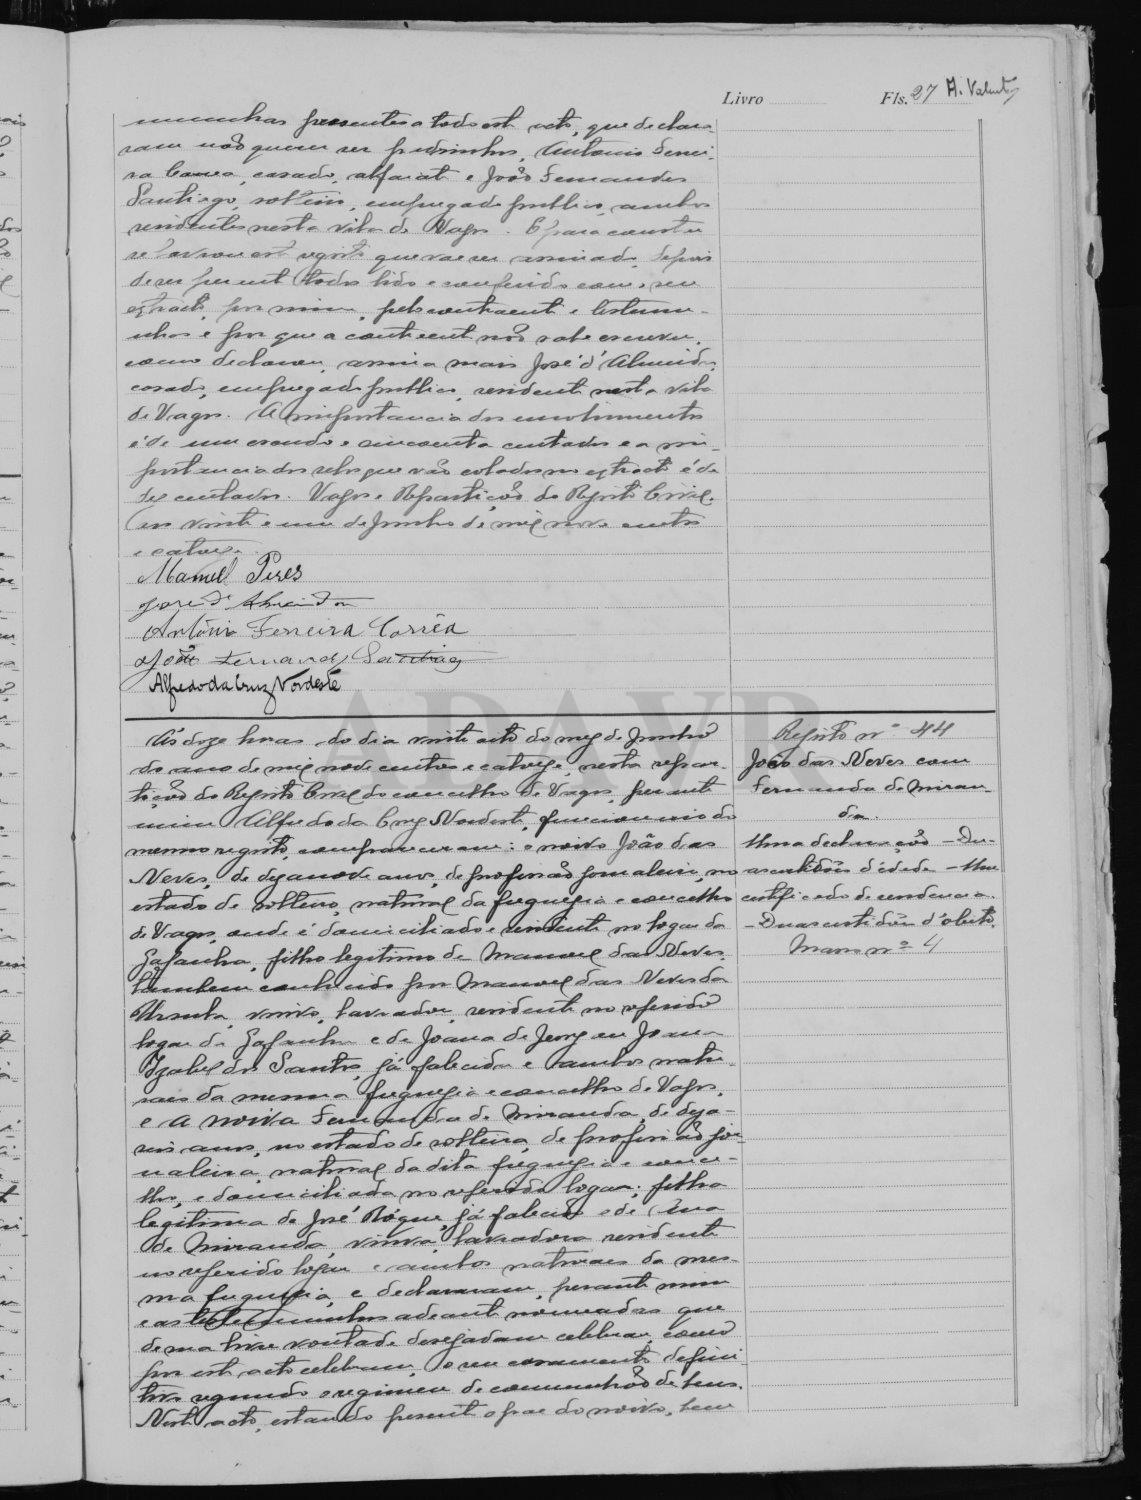 Livro Fls. 27 A. Valente
munhas presentes a todo este acto, que declara-
ram não querer ser padrinhos, Antonio Ferrei-
ra Correa, casado, alfaiate e João Fernandes
Santiago, solteiro, empregado publico, ambos
residentes nesta vila de Vagos. E para constar
se lavrou este registo que vae ser assinado, depois
de ser perante todos lido e conferido com o seu
extracto, por mim, pelo contraente e testemu-
nhas e por que a contraente não sabe escrever,
como declarou, assina mais José d'Almeida,
casado, empregado publico, residente nesta vila
de Vagos. A importancia dos emolumentos
é de um escudo e cincoenta centavos e a im-
portancia dos selos que vão colados no extracto é de
dez centavos. Vagos e Repartição do Registo Civil,
em vinte e um de Junho de mil nove centos
e catorze.
Manuel Peres
José d'Almeida
António Ferreira Corrêa
João Fernandes Santiago
Alfredo da Cruz Nordeste
ADAVR
Ás doze horas do dia vinte oito do mez de Junho
do ano de mil nove centos e catorze, nesta repar-
tição do Registo Civil do concelho de Vagos, perante
mim Alfredo da Cruz Nordeste, funcionario do
mesmo registo, compareceram: o noivo João das
Neves, de dezanove anos, de profissão jornaleiro, no
estado de solteiro, natural da freguezia e concelho
de Vagos, onde é domiciliado e residente no logar da
Gafanha, filho legitimo de Manoel das Neves,
tambem conhecido por Manoel das Neves da
Ursula, viuvo, lavrador, residente no referido
logar da Gafanha e de Joana de Jesus ou Joana
Izabel dos Santos, já falecida e ambos natu-
raes da mesma freguezia e concelho de Vagos,
e a noiva Fernanda de Miranda, de deza-
seis anos, no estado de solteira, de profissão jor-
naleira, natural da dita freguezia e conce-
lho, e domiciliada no referido logar; filha
legitima de José Roque, já falecido e de
de Miranda, viuva, lavradora, residente
no referido logar e ambos naturaes da mes-
ma freguezia, e declararam, perante mim
e as testemunhas adeante nomeadas que
de sua livre vontade desejavam celebrar, como
por este acto celebram, o seu casamento defini-
tivo segundo o regimen de comunhão de bens.
Neste acto, estando presente o pae do noivo, bem
Registo nº 44
João das Neves com
Fernanda de Miran-
da.
Uma declaração - Du-
as certidões d'edade - Um
certificado de residencia.
- Duas certidões d'obito.
Maço nº 4